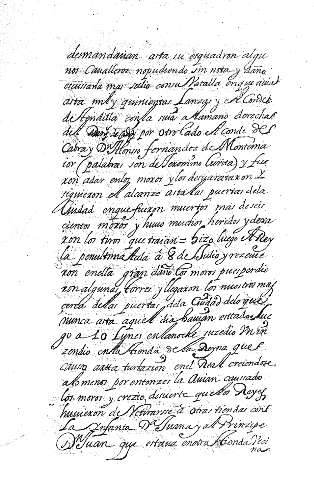 desmandavan asta su esquadron algu
nos Cavalleros, no pudiendo sin nota y daño
escusarla mas salio con su Batalla en que avia
asta mil y quinientas Lanzas y el Conde
de Tendilla con la suia a la mano derecha
del por otro lado el Conde de
Cabra y Dn. Alonso fernandez de Montema
ior (palabras son de Jeronimo Curita) y fue
ron a dar en los moros y los desvarataron y
siguieron el alcanze asta las puertas de la
Ciudad en que fueron muertos mas de seis
cientos moros y huvo muchos heridos y dexa
ron los tiros que traian = Hizo luego el Rey
la penultima tala a 8 de Julio y recivie
ron en ella gran daño los moros pues perdie
ron algunas torres y llegaron los nuestros mas
cerca de las puertas de la Ciudad de lo que
nunca asta aquel dia havian estado = Lue
go a 10 Lunes en la noche sucedio un in
zendio en la tienda de la Reyna que
causo arta turbacion en el Real creiendose
a lo menos por entonzes la avian causado
los moros y crezio de suerte que los Reyes
huvieron de retirarse a otras tiendas con
la Infanta Da. Juana y al Principe
Dn. Juan que estava en otra tienda vezi
na